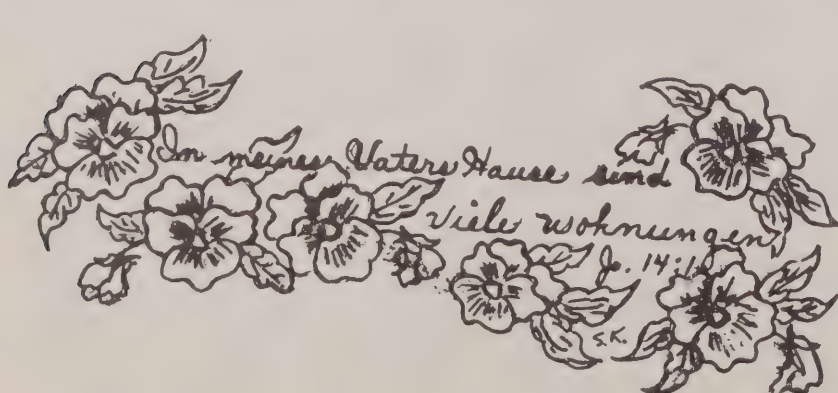 In meines Vaters Hause sind
Viele wohnungen,
14:1
S.K.